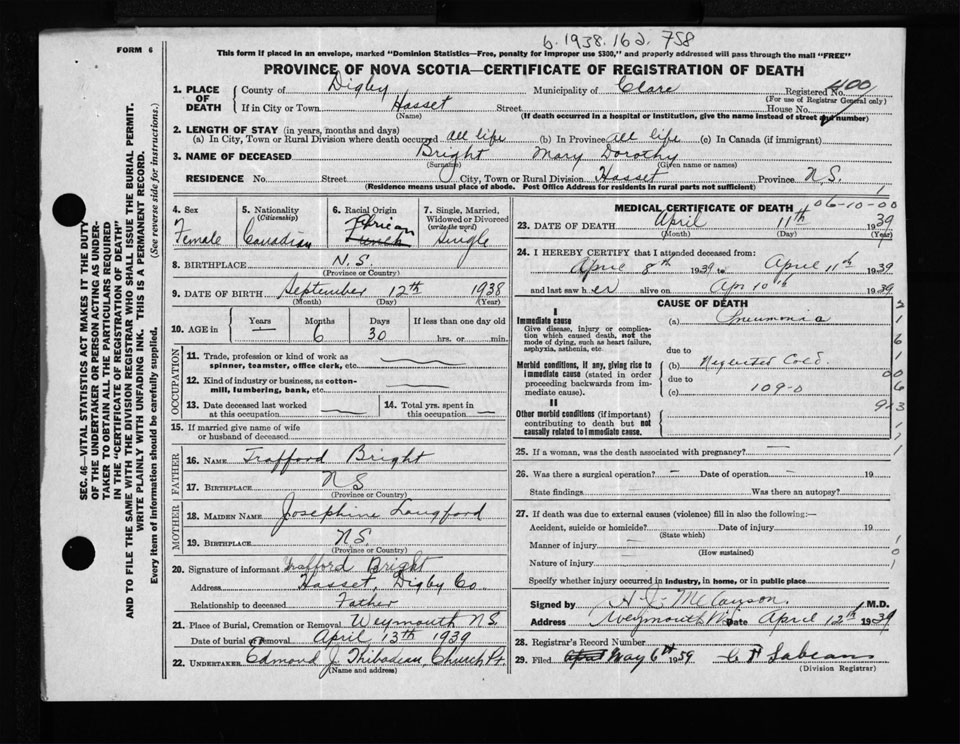 b. 1938. 162. 758
FORM 6
This form if placed in an envelope, marked "Dominion Statistics—Free, penalty for improper use $300," and properly addressed will pass through the mail "FREE"
PROVINCE OF NOVA SCOTIA—CERTIFICATE OF REGISTRATION OF DEATH
1. PLACE OF DEATH
County of Digby Municipality of Clare Registered No. 400
(For use of Registrar General only)
If in City or Town Hasset Street House No.
(Name) (If death occurred in a hospital or institution, give the name instead of street and number)
2. LENGTH OF STAY (in years, months and days)
(a) In City, Town or Rural Division where death occurred all life (b) In Province all life (c) In Canada (if immigrant)
3. NAME OF DECEASED Bright Mary Dorothy
(Surname) (Given name or names)
RESIDENCE No. Street City, Town or Rural Division Hasset Province N.S.
(Residence means usual place of abode. Post Office Address for residents in rural parts not sufficient)
1
SEC. 46—VITAL STATISTICS ACT MAKES IT THE DUTY
OF THE UNDERTAKER OR PERSON ACTING AS UNDER-
TAKER TO OBTAIN ALL THE PARTICULARS REQUIRED
IN THE "CERTIFICATE OF REGISTRATION OF DEATH"
AND TO FILE THE SAME WITH THE DIVISION REGISTRAR WHO SHALL ISSUE THE BURIAL PERMIT.
WRITE PLAINLY WITH UNFADING INK. THIS IS A PERMANENT RECORD.
Every item of information should be carefully supplied. (See reverse side for instructions.)
4. Sex
Female
5. Nationality
(Citizenship)
Canadian
6. Racial Origin
African
7. Single, Married, Widowed or Divorced
(write the word)
Single
8. BIRTHPLACE N.S.
(Province or Country)
9. DATE OF BIRTH September 12th 1938
(Month) (Day) (Year)
10. AGE in
Years Months Days If less than one day old
— 6 30 hrs. or min.
OCCUPATION
11. Trade, profession or kind of work as
spinner, teamster, office clerk, etc.
12. Kind of industry or business, as cotton-
mill, lumbering, bank, etc.
13. Date deceased last worked
at this occupation
14. Total yrs. spent in
this occupation
15. If married give name of wife
or husband of deceased
FATHER
16. NAME Trafford Bright
17. BIRTHPLACE N.S.
(Province or Country)
MOTHER
18. MAIDEN NAME Josephine Langford
19. BIRTHPLACE N.S.
(Province or Country)
20. Signature of informant Trafford Bright
Address Hasset, Digby Co
Relationship to deceased Father
21. Place of Burial, Cremation or Removal Weymouth N.S.
Date of burial or removal April 13th 1939
22. UNDERTAKER Edmond J. Thibodeau, Church Pt.
(Name and address)
MEDICAL CERTIFICATE OF DEATH
06-10-00
23. DATE OF DEATH April 11th 1939
(Month) (Day) (Year)
24. I HEREBY CERTIFY that I attended deceased from:
April 8th 1939 to April 11th 1939
and last saw her alive on Apr 10th 1939
CAUSE OF DEATH
I
Immediate cause
Give disease, injury or complication which caused death, not the mode of dying, such as heart failure, asphyxia, asthenia, etc.
(a) Pneumonia
due to
Morbid conditions, if any, giving rise to immediate cause (stated in order proceeding backwards from immediate cause).
(b) Neglected Cold.
due to
(c) 109-0
II
Other morbid conditions (if important) contributing to death but not causally related to immediate cause.
25. If a woman, was the death associated with pregnancy? —
26. Was there a surgical operation? — Date of operation — 19
State findings Was there an autopsy?
27. If death was due to external causes (violence) fill in also the following:—
Accident, suicide or homicide? Date of injury 19
(State which)
Manner of injury
(How sustained)
Nature of injury
Specify whether injury occurred in industry, in home, or in public place
Signed by M.D.
Address Weymouth N.S. Date April 12th 1939
28. Registrar's Record Number
29. Filed May 6th 1939
(Division Registrar)